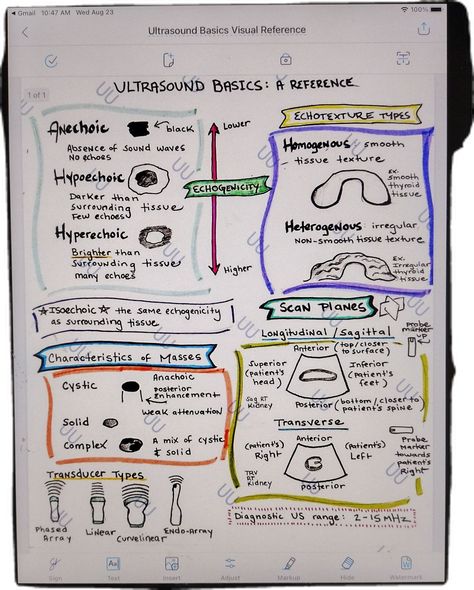 Gmail 10:47 AM Wed Aug 23
100%
Ultrasound Basics Visual Reference
1 of 1
ULTRASOUND BASICS: A REFERENCE
Anechoic
black
Absence of Sound waves
No echoes
Hypoechoic
Darker than
surrounding tissue
Few echoes
Hyperechoic
Brighter than
surrounding tissue
many echoes
Lower
ECHOGENICITY
Higher
ECHOTEXTURE TYPES
Homogenous: smooth
tissue texture
Ex.
Smooth
thyroid
tissue
Heterogenous: irregular
NON-smooth tissue texture
Ex.
Irregular
thyroid
tissue
Isoechoic the same echogenicity
as surrounding tissue
SCAN PLANES
Longitudinal/Sagittal
Probe
marker
UP
Anterior (top/closer
to surface)
Superior
(patient's
head)
Inferior
(patient's
feet)
Sag RT
Kidney
Posterior (bottom/closer to
patient's spine
Transverse
Anterior
(patient's)
Right
(patient's)
Left
Probe
Marker
towards
patient's
Right
TRV
RT
Kidney
Posterior
Characteristics of Masses
Cystic
Anachoic
posterior
Enhancement
Weak attenuation
Solid
Complex
A mix of cystic
& solid
Transducer Types
Phased
Array
Linear
Curvelinear
Endo-Array
Diagnostic US range: 2-15 MHz
UU
Sign
Text
Insert
Adjust
Markup
Hide
Watermark